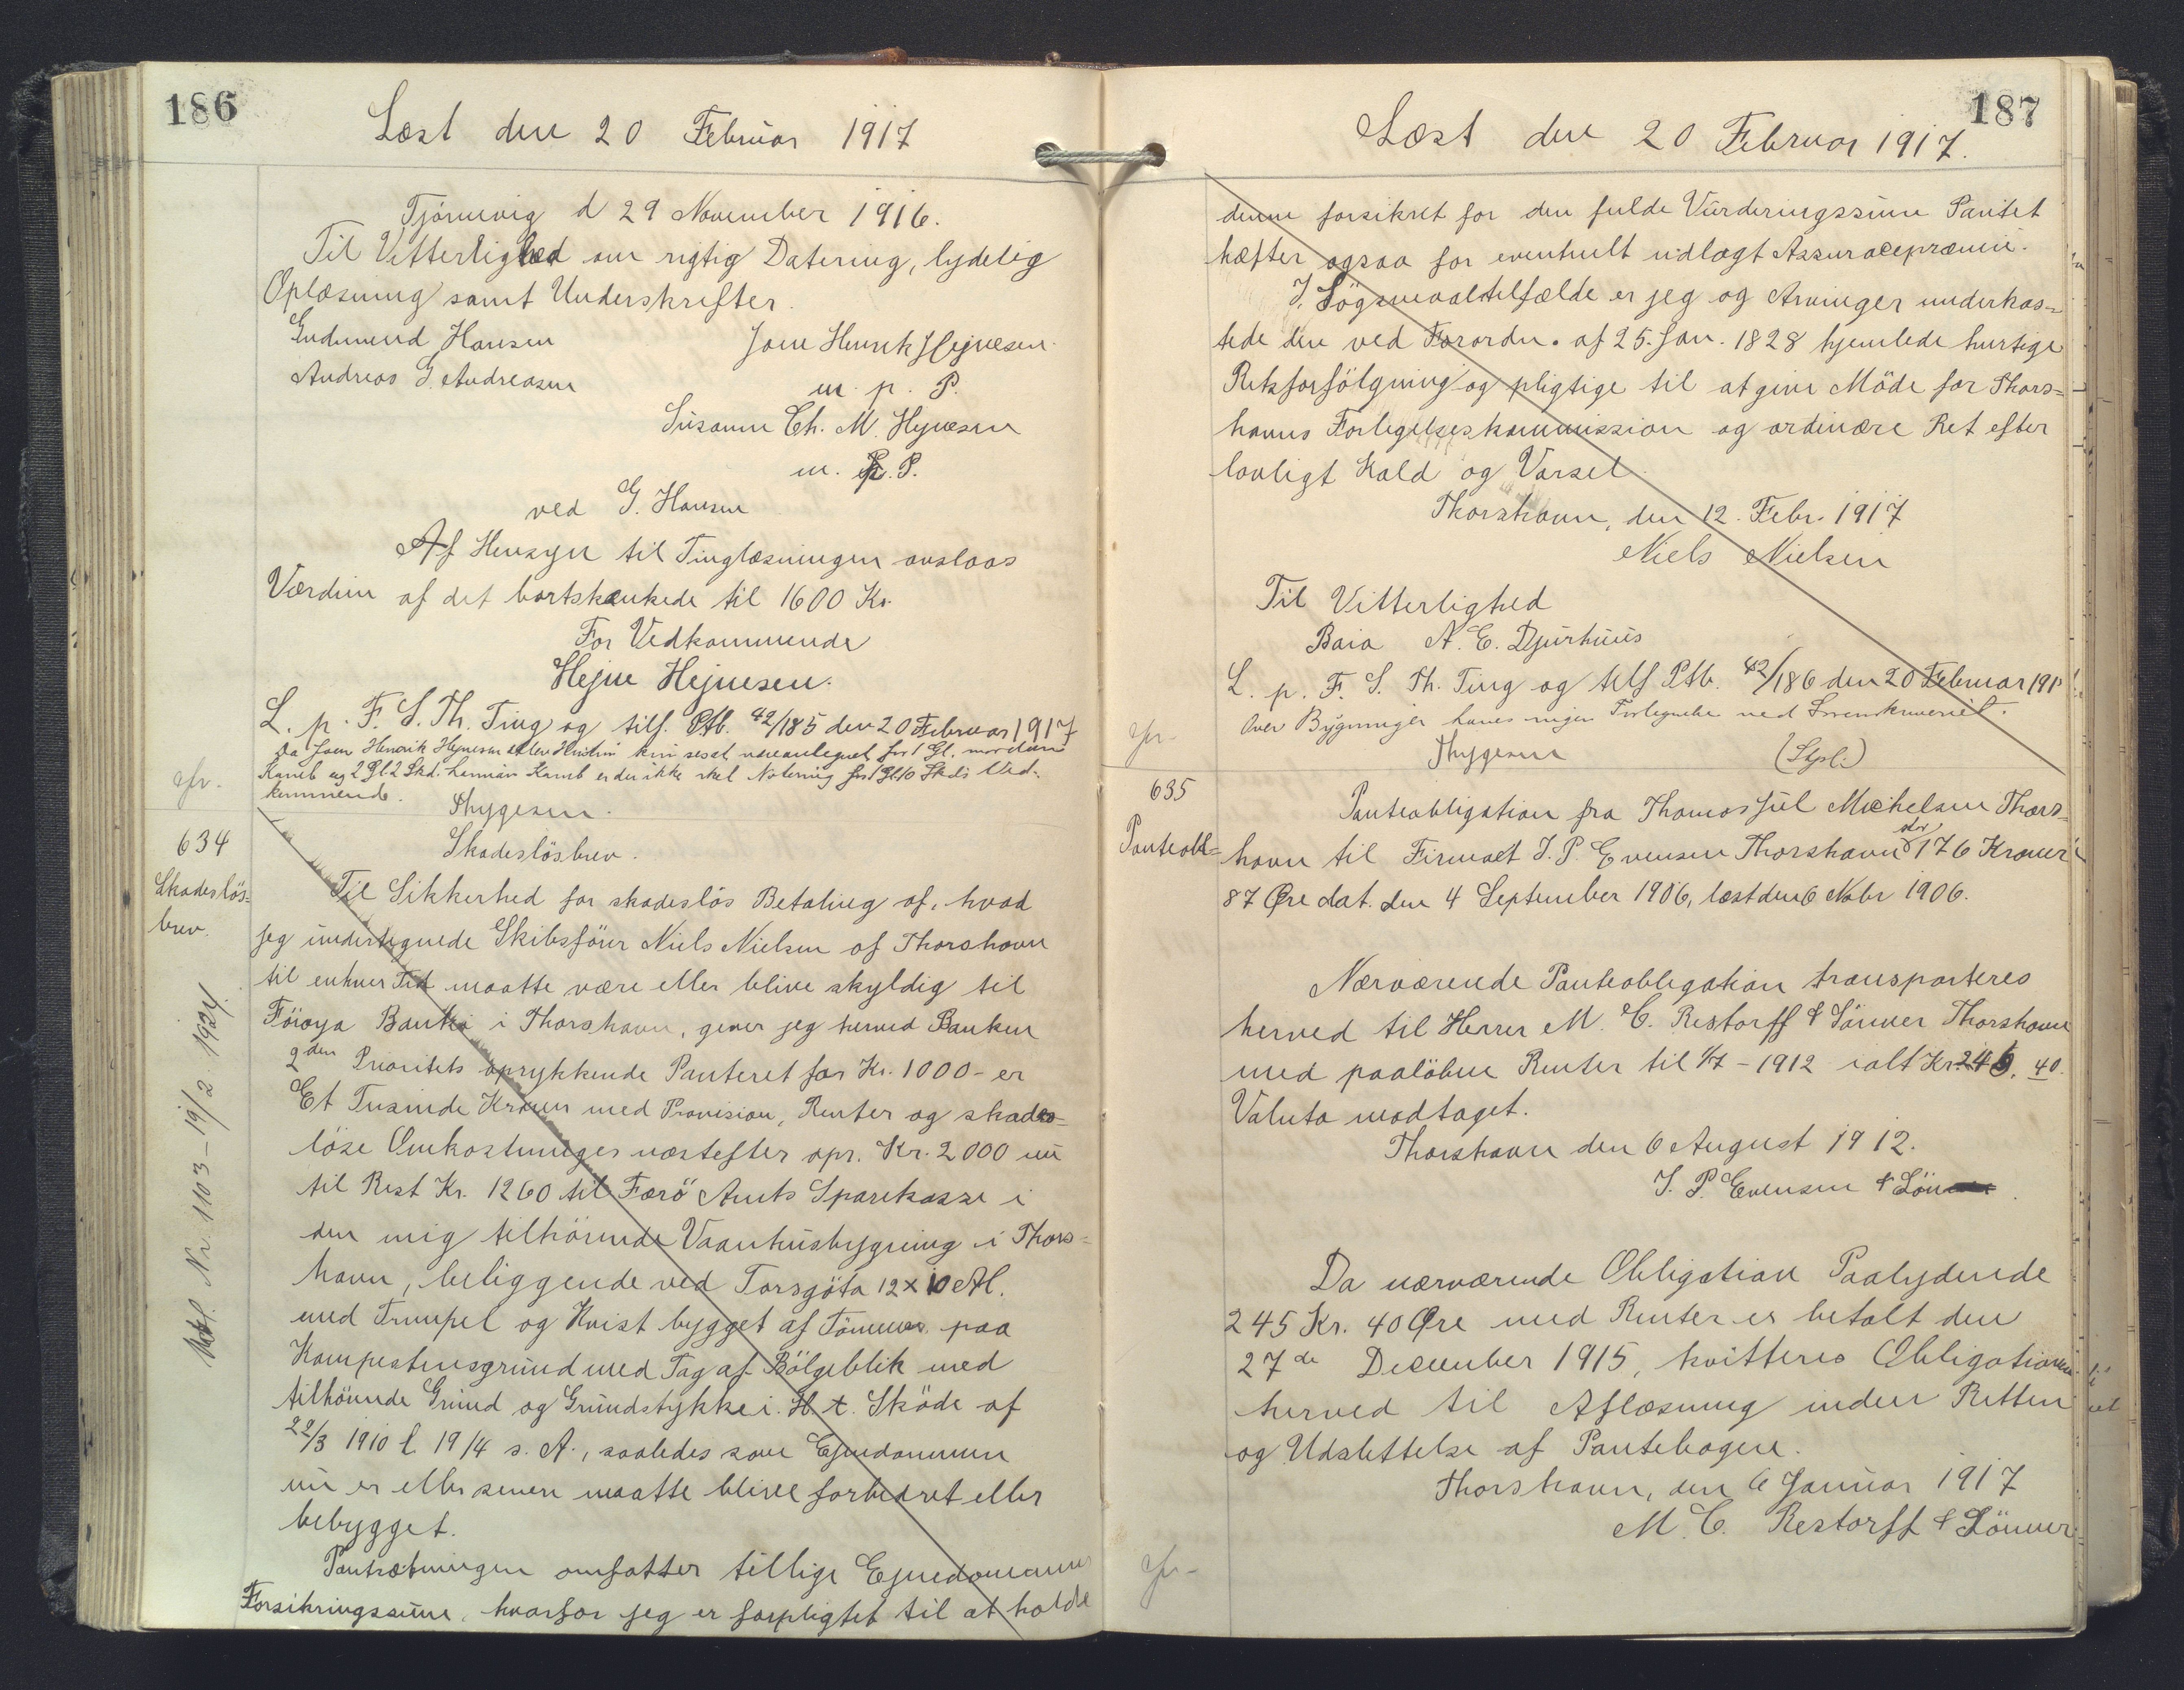 186
Læst den 20 Februar 1917
Tjörnevig d 29 November 1916.
Til Vitterlighed om rigtig Datering, lydelig
Oplæsning samt Underskrifter.
Gudmund Hansen
Joen Henrik Hejnesen.
Andreas J. Andreasen
m. p. P.
Susanne Ch. M. Hejnesen
m. p. P.
ved G. Hansen
Af Hensyn til Tinglæsningen anslaas
Værdien af det bortskænkede til 1600 Kr.
For Vedkommende
Hejne Hejnesen.
L. p. F. S. Th. Ting og tilf. Ptb. 42/185 den 20 Februar 1917
Da Joen Henrik Hejnesen eller Hustru kun seset vedantegnet for 1 Gl. nordari
Kamb og 2 Gl. 2 Skd. hermian Kamb er der ikke sket Notering for 1 Gl. 10 Skds Ved-
kommende.
Thygesen.
cfr.
634
Skadeslös-
brev.
Skadeslösbrev.
Til Sikkerhed for skadeslös Betaling af, hvad
jeg undertegnede Skibsförer Niels Nielsen af Thorshavn
til enhver Tid maatte være eller blive skyldig til
Föroya Banki i Thorshavn, giver jeg herved Banken
2den Prioritets oprykkende Panteret for Kr. 1000 - er
Et Tusinde Kroner med Provision, Renter og skades-
löse Omkostninger næstefter opr. Kr. 2000 nu
til Rest Kr. 1260 til Færö Amts Sparekasse i
den mig tilhörende Vaanhusbygning i Thors-
havn, beliggende ved Torsgöta 12 x 10 Al.
med Trempel og Kvist bygget af Tömmer paa
Kampestensgrund med Tag af Bölgeblik med
tilhörende Grund og Grundstykke i. H. t. Sköde af
22/3 1910 l. 19/4 s. A., saaledes som Ejendommen
nu er eller senere maatte blive forbedret eller
bebygget.
Pantsætningen omfatter tillige Ejendommens
Forsikringssum, hvorfor jeg er forpligtet til at holde
Nr. 1103 - 19/2 1924
187
Læst den 20 Februar 1917.
denne forsikret for den fulde Vurderingssum Pantet
hæfter ogsaa for eventuelt udlagt Assuracepræmie.
I Sögsmaalstilfælde er jeg og Arvinger underkas-
tede den ved Forordn. af 25. Jan. 1828 hjemlede hurtige
Retsforfölgning og pligtige til at give Möde for Thors-
havns Forligelseskommission og ordinære Ret efter
lovligt Kald og Varsel.
Thorshavn, den 12. Febr. 1917
Niels Nielsen
Til Vitterlighed
Baia A. E. Djurhuus
L. p. F. S. Th. Ting og tilf Ptb. 42/186 den 20 Februar 191
Over Bygningen haves ingen Tinlysnelse ved Sorenskriveriet.
Thygesen
(Stpl.)
cfr.
635
Panteobl-
Panteobligation fra Thomas Jul Michelsen Thors-
havn til Firmaet J. P. Evensen Thorshavn stor 176 Kroner
87 Øre dat. den 4 September 1906, læst den 6 Nobr 1906.
Nærværende Panteobligation transporteres
herved til Herrer M. C. Restorff & Sönner Thorshavn
med paalöbne Renter til 1/7 - 1912 ialt Kr. 245. 40.
Valuta modtaget.
Thorshavn den 6 August 1912.
J. P. Evensen & Sön
Da nærværende Obligation Paalydende
245 Kr. 40 Øre med Renter er betalt den
27de December 1915, kvitteres Obligationen
herved til Aflæsning inden Retten
og Udslettelse af Pantebogen.
Thorshavn, den 6 Januar 1917
M. C. Restorff & Sönner
cfr-